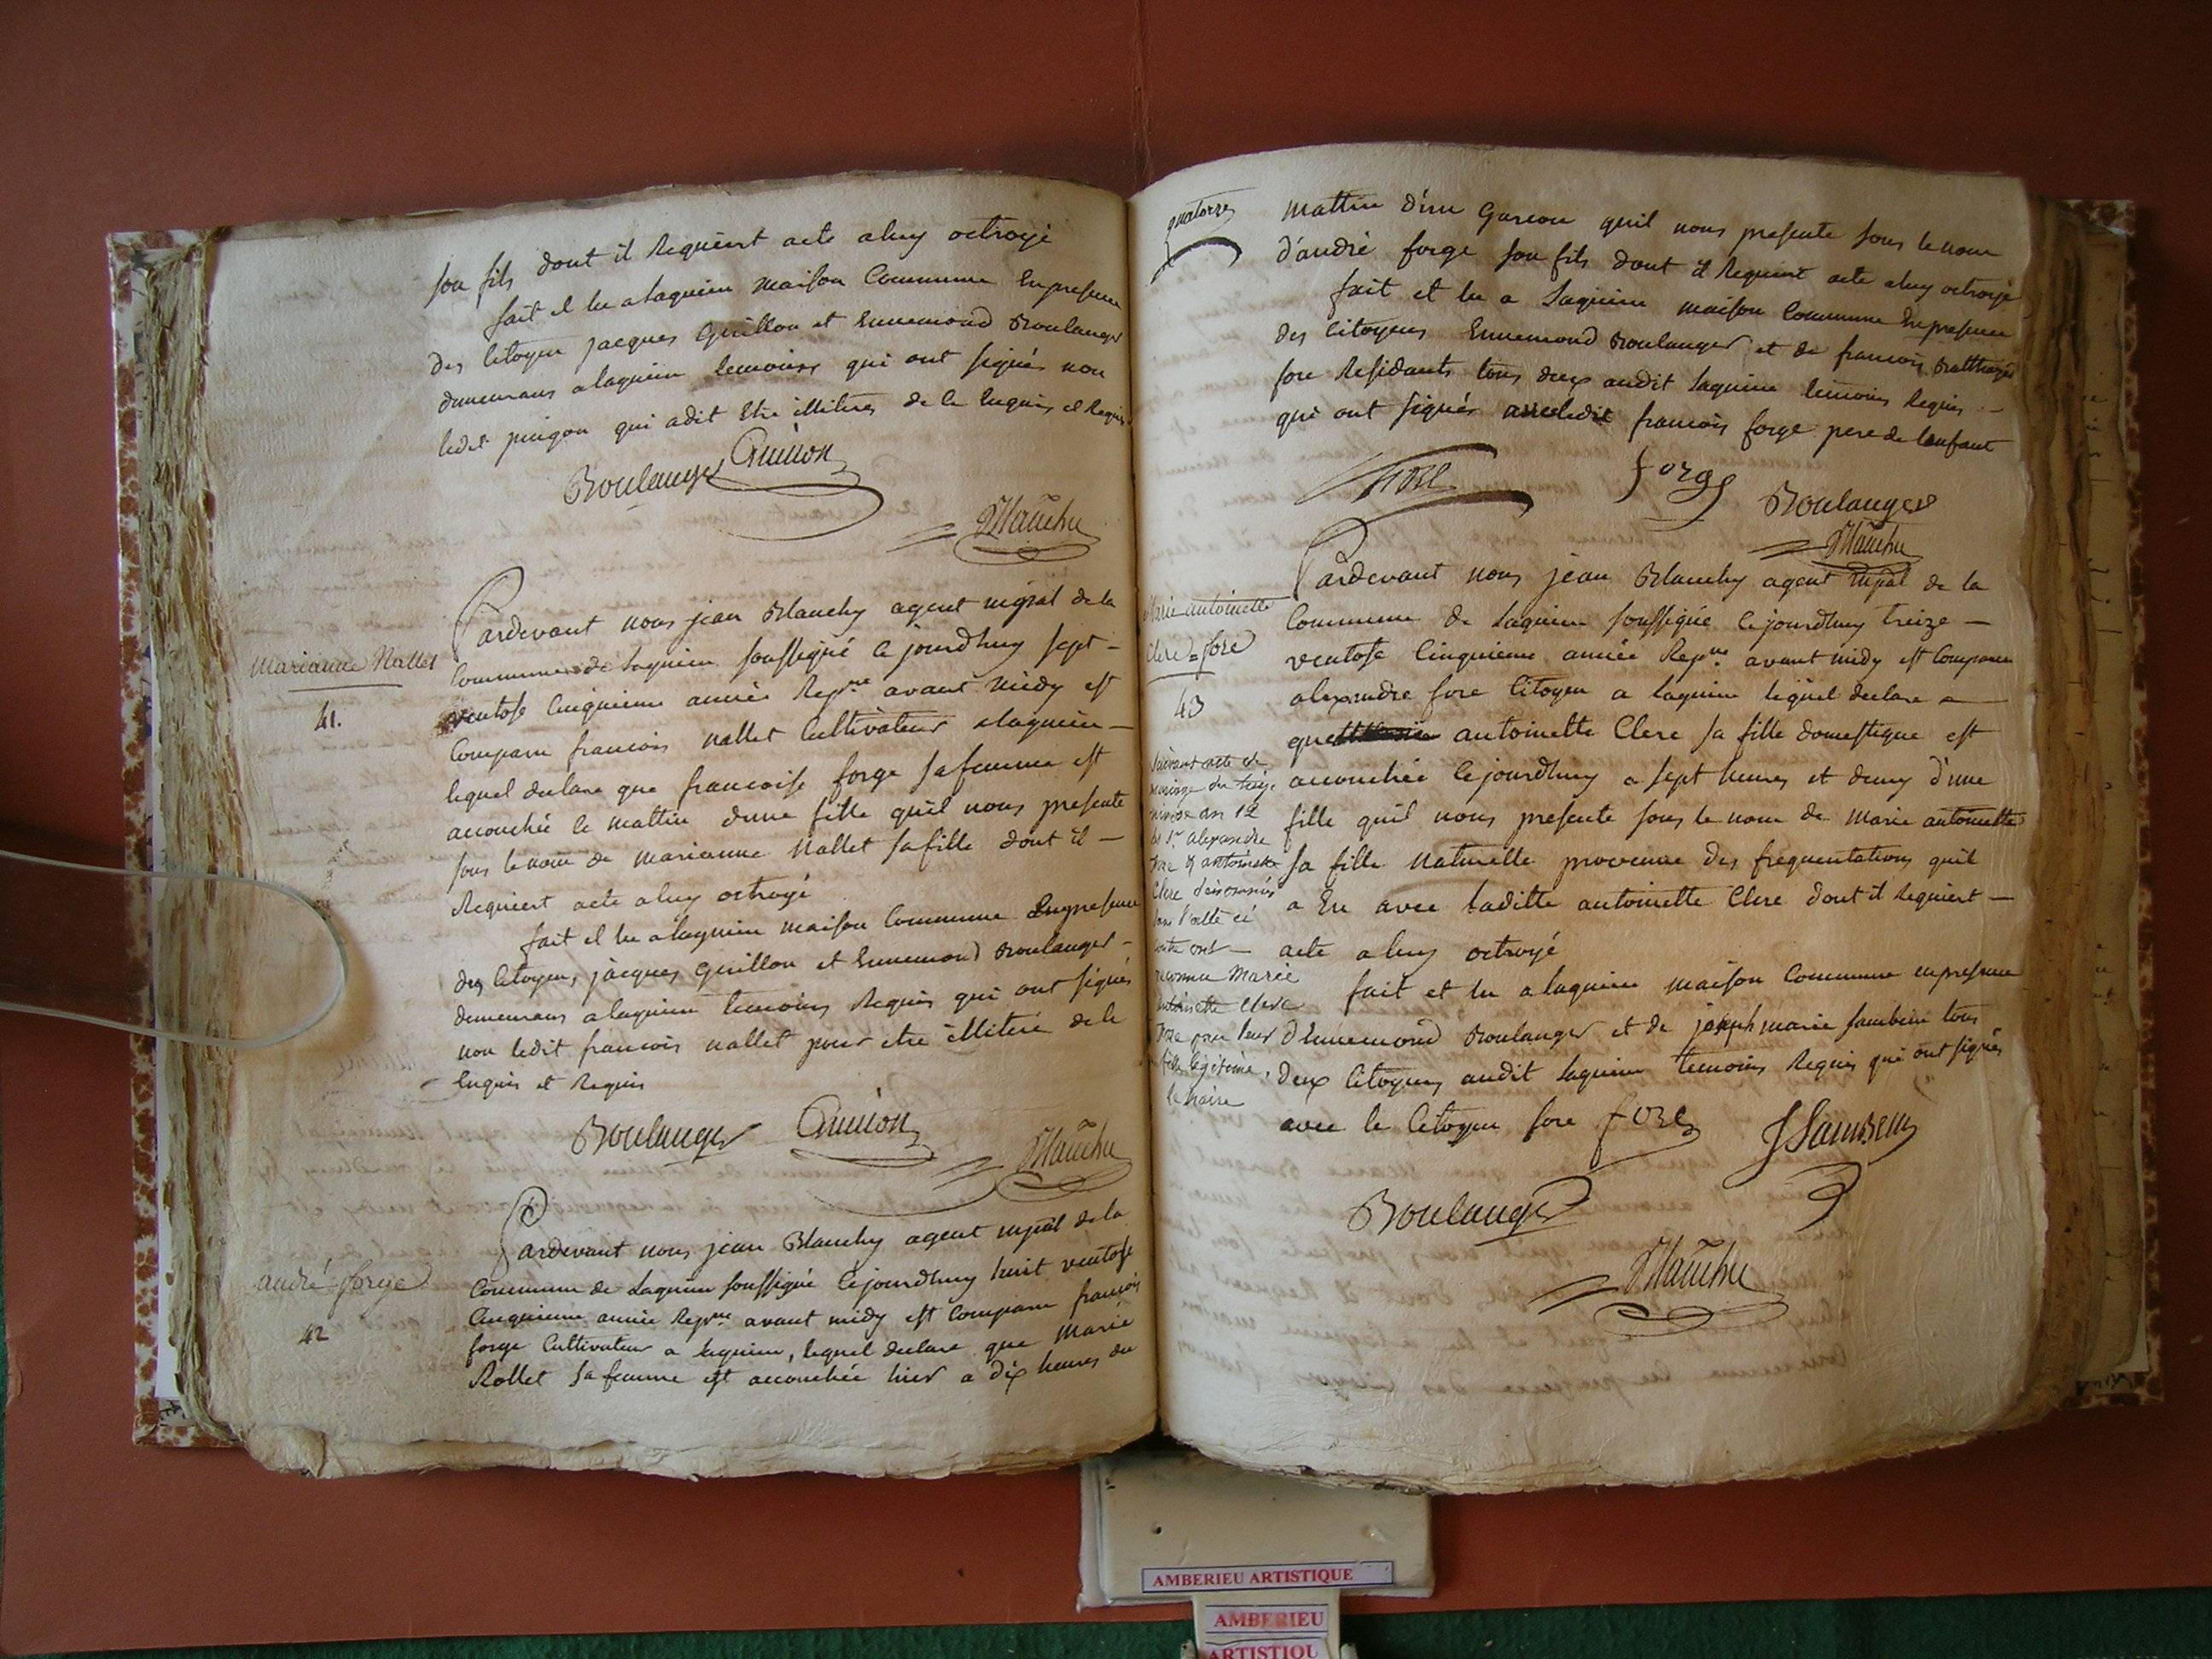 son fils dont il Requiert acte a luy octroyé
fait et lu a lagnieu maison Commune En presence
des Citoyen jacques Guillon et Ennemond Boulanger
demeurans a lagnieu temoins qui ont signés non
ledit pingon qui a dit Etre illiteré de le Enquis et Requis
Boulanger Guillon
JBlanchy
Marianne Nallet
41.
Pardevant nous jean Blanchy agent mpal de la
Commune de Lagnieu soussigné Cejourdhuy sept -
ventose Cinquieme année Repne avant midy est
Comparu francois nallet Cultivateur a lagnieu -
lequel declare que francoise forge sa femme est
accouchée le mattin dune fille quil nous presente
sous le nom de marianne Nallet sa fille dont il -
Requiert acte a luy octroyé
fait et lu a lagnieu maison Commune En presence
des Citoyens, jacques Guillon et Ennemond Boulanger -
demeurans a lagnieu temoins Requis qui ont signés
non ledit francois nallet pour etre illiteré de le
Enquis et Requis
Boulanger Guillon
JBlanchy
andré forge
42
Pardevant nous jean Blanchy agent mpal de la
Commune de Lagnieu soussigné Cejourdhuy huit ventose
Cinquieme année Repne avant midy est Comparu francois
forge Cultivateur a lagnieu, lequel declare que Marie
Rollet sa femme est accouchée hier a dix heures du
quatorze
mattin d'un Garcon quil nous presente sous le nom
d'andré forge son fils dont il Requiert acte a luy octroyé
fait et lu a Lagnieu maison Commune En presence
des Citoyens Ennemond Boulanger et de francois
fore Residants tous deux audit Lagnieu temoins Requis -
qui ont signés avec ledit francois forge pere de lenfant
fore forge
Boulanger
JBlanchy
Marie antoinette
Clere = fore
43
Pardevant nous jean Blanchy agent mpal de la
Commune de Lagnieu soussigné Cejourdhuy treize -
ventose Cinquieme année Repne avant midy est Comparu
alexandre fore Citoyen a lagnieu lequel declare -
que antoinette Clere sa fille domestique est
accouchée Cejourdhuy a sept heures et demy d'une
fille quil nous presente sous le nom de Marie antoinette
sa fille Naturelle provenue des frequentations quil
a Eu avec laditte antoinette Clere dont il Requiert -
acte a luy octroyé
fait et lu a lagnieu maison Commune en presence
d'Ennemond Boulanger et de joseph marie sambein tous
deux Citoyens audit Lagnieu temoins Requis qui ont signés
avec le Citoyen fore fore JSambein
Boulanger
JBlanchy
Suivant acte de
mariage du treize
nivose an 12
du Sr alexandre
fore & antoinette
Clere dénommés
dans l'acte ci
contre ont
reconnu Marie
antoinette Clere
fore pour leur
fille légitime.
le Maire
AMBERIEU ARTISTIQUE
AMBERIEU
ARTISTIQU